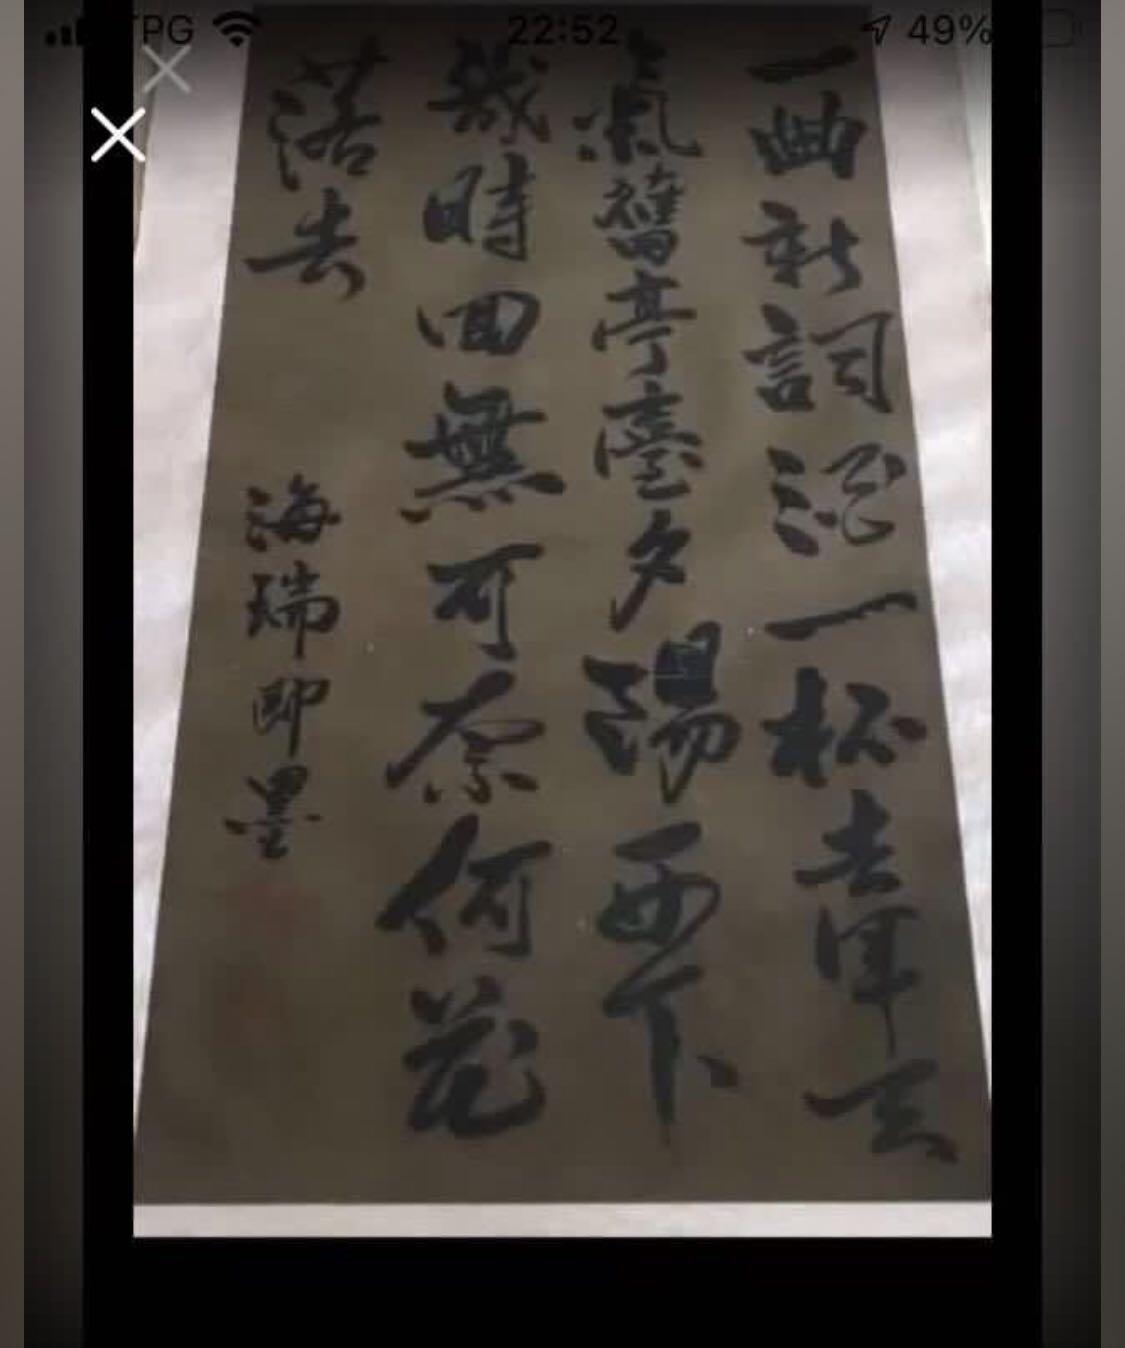 TPG 22:52 49%
一曲新詞酒一杯去年天
氣舊亭臺夕陽西下
幾時回無可奈何花
落去
海瑞即墨